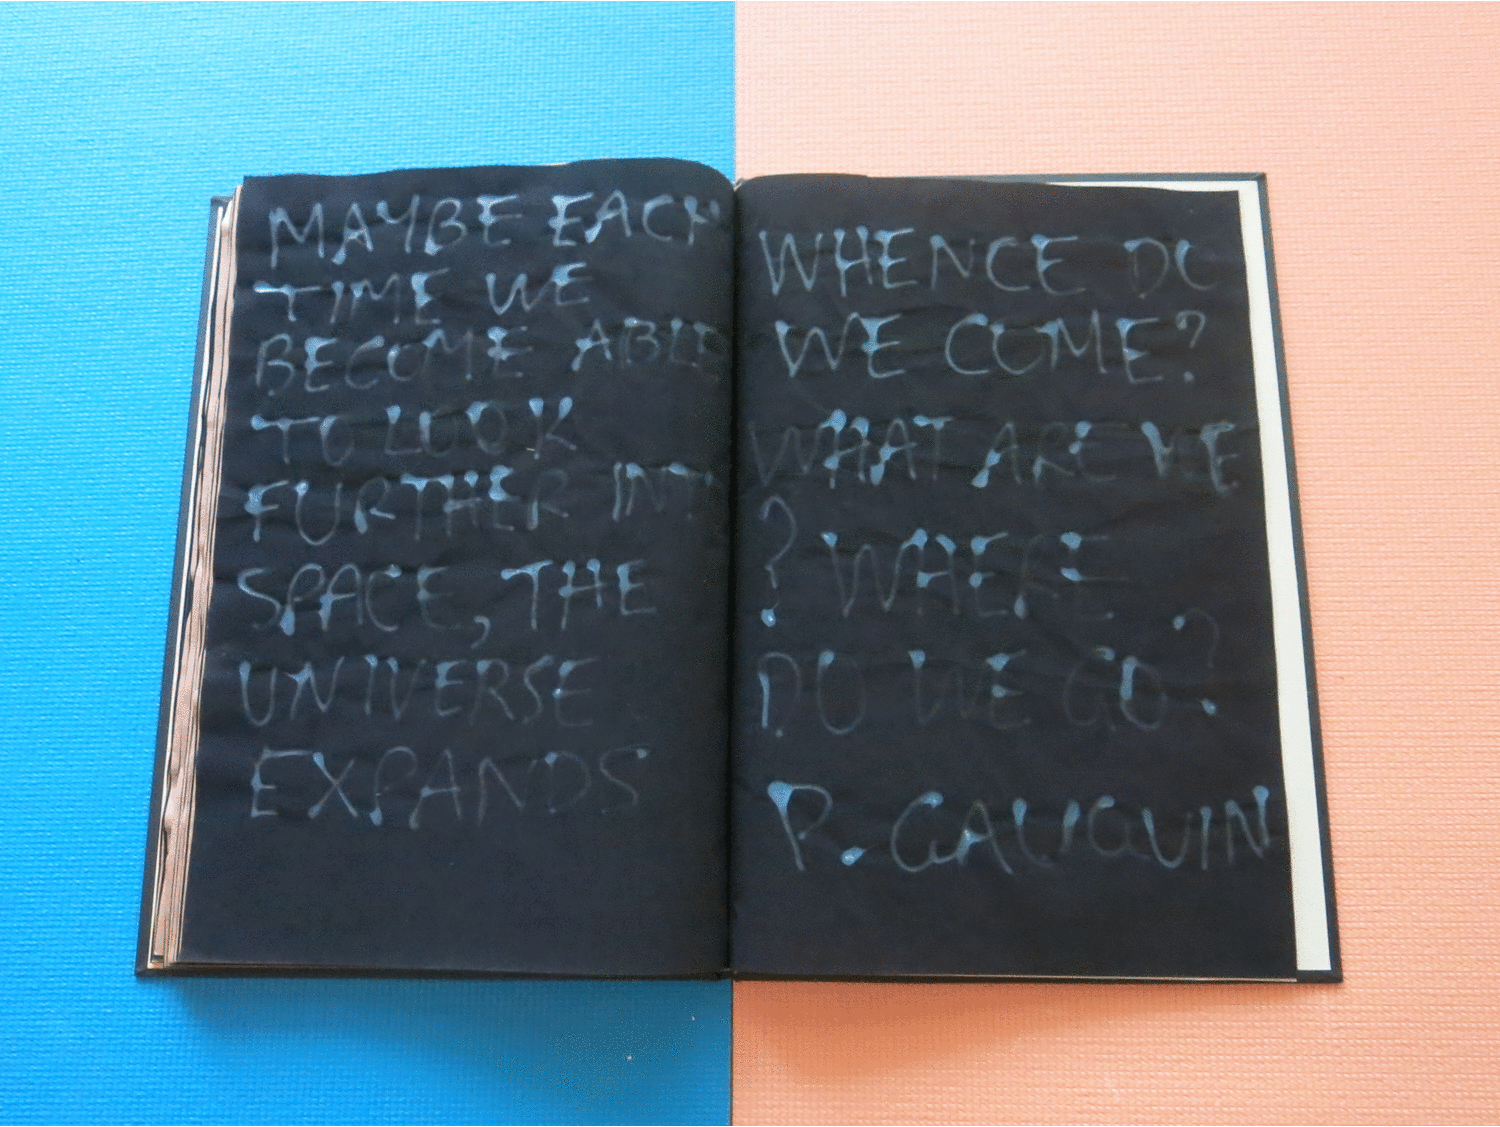 MAYBE EACH
TIME WE
BECOME ABLE
TO LOOK
FURTHER INT
SPACE, THE
UNIVERSE
EXPANDS
WHENCE DO
WE COME?
WHAT ARE WE
? WHERE
DO WE GO?
P. GAUGUIN